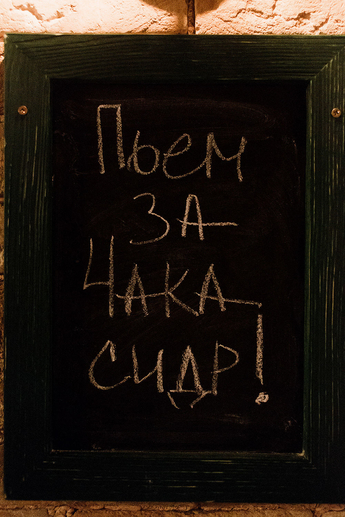 Пьем
за
Чака
сидр!